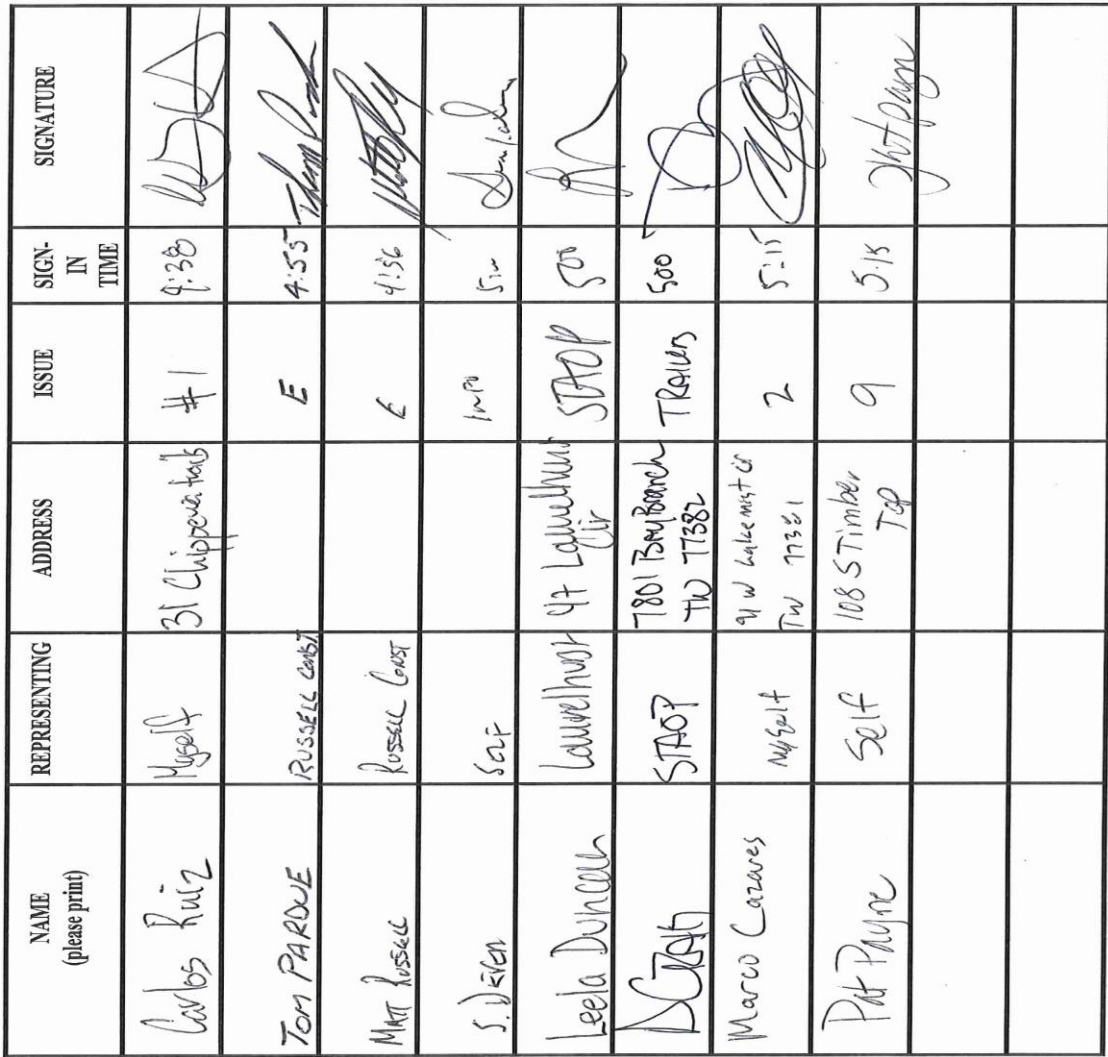 NAME
(please print)
REPRESENTING
ADDRESS
ISSUE
SIGN-
IN
TIME
SIGNATURE
Carlos Ruiz
Myself
31 Chippewa trails
#1
4:38
TOM PARDUE
RUSSELL CONST
E
4:55
MATT RUSSELL
RUSSELL CONST
E
4:56
S.
SELF
INFO
Leela Duncan
Laurelhurst
47 Laurelhurst
Cir
STAOP
500
STAOP
7801 Bay Branch
TW 77382
TRAILERS
500
Marco Cazares
myself
91 W Lakemist cir
TW 77381
2
5:15
Pat Payne
Self
108 S Timber
Top
9
5:15
Pat Payne